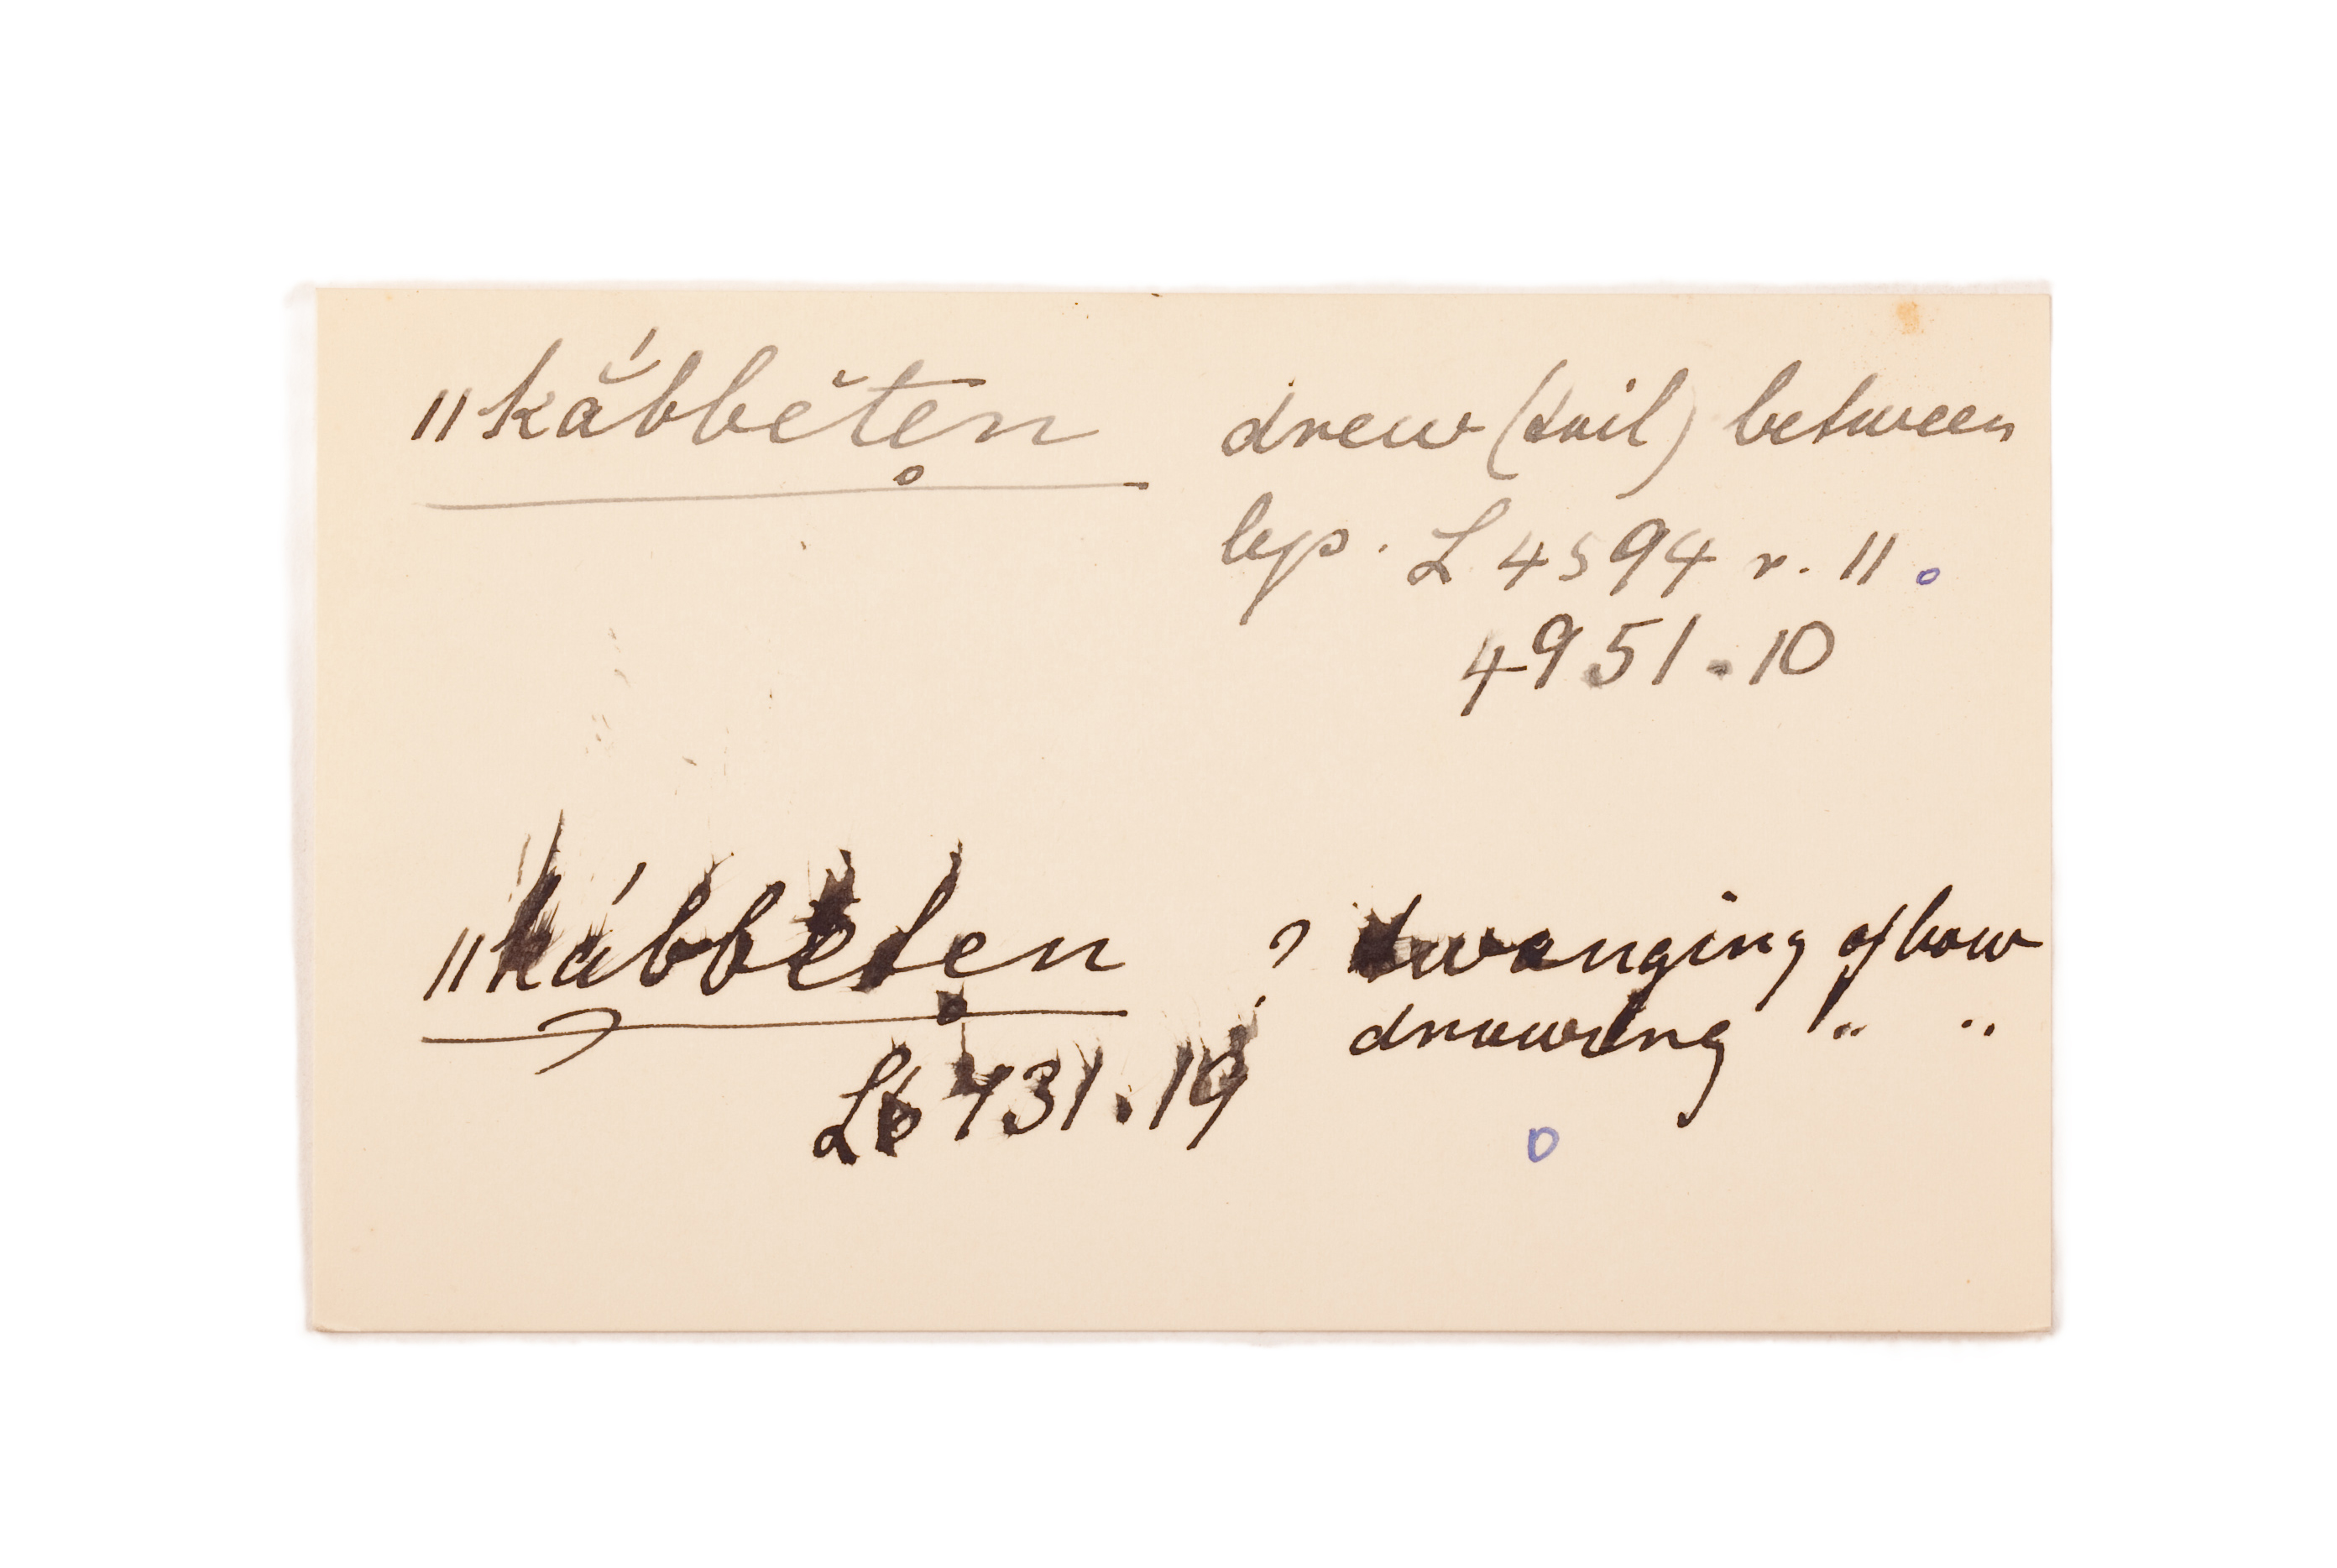 ǁkắbbĕte̥n drew (tail) between
legs. L 4594 r. 11.
4951.10
ǁkábbĕte̥n ? twanging of bow
drawing " "
L6 731.19